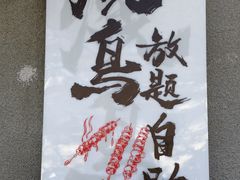 鳥
放題自